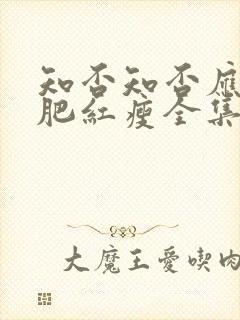 知否知否應
肥紅瘦全集
大魔王愛喫肉